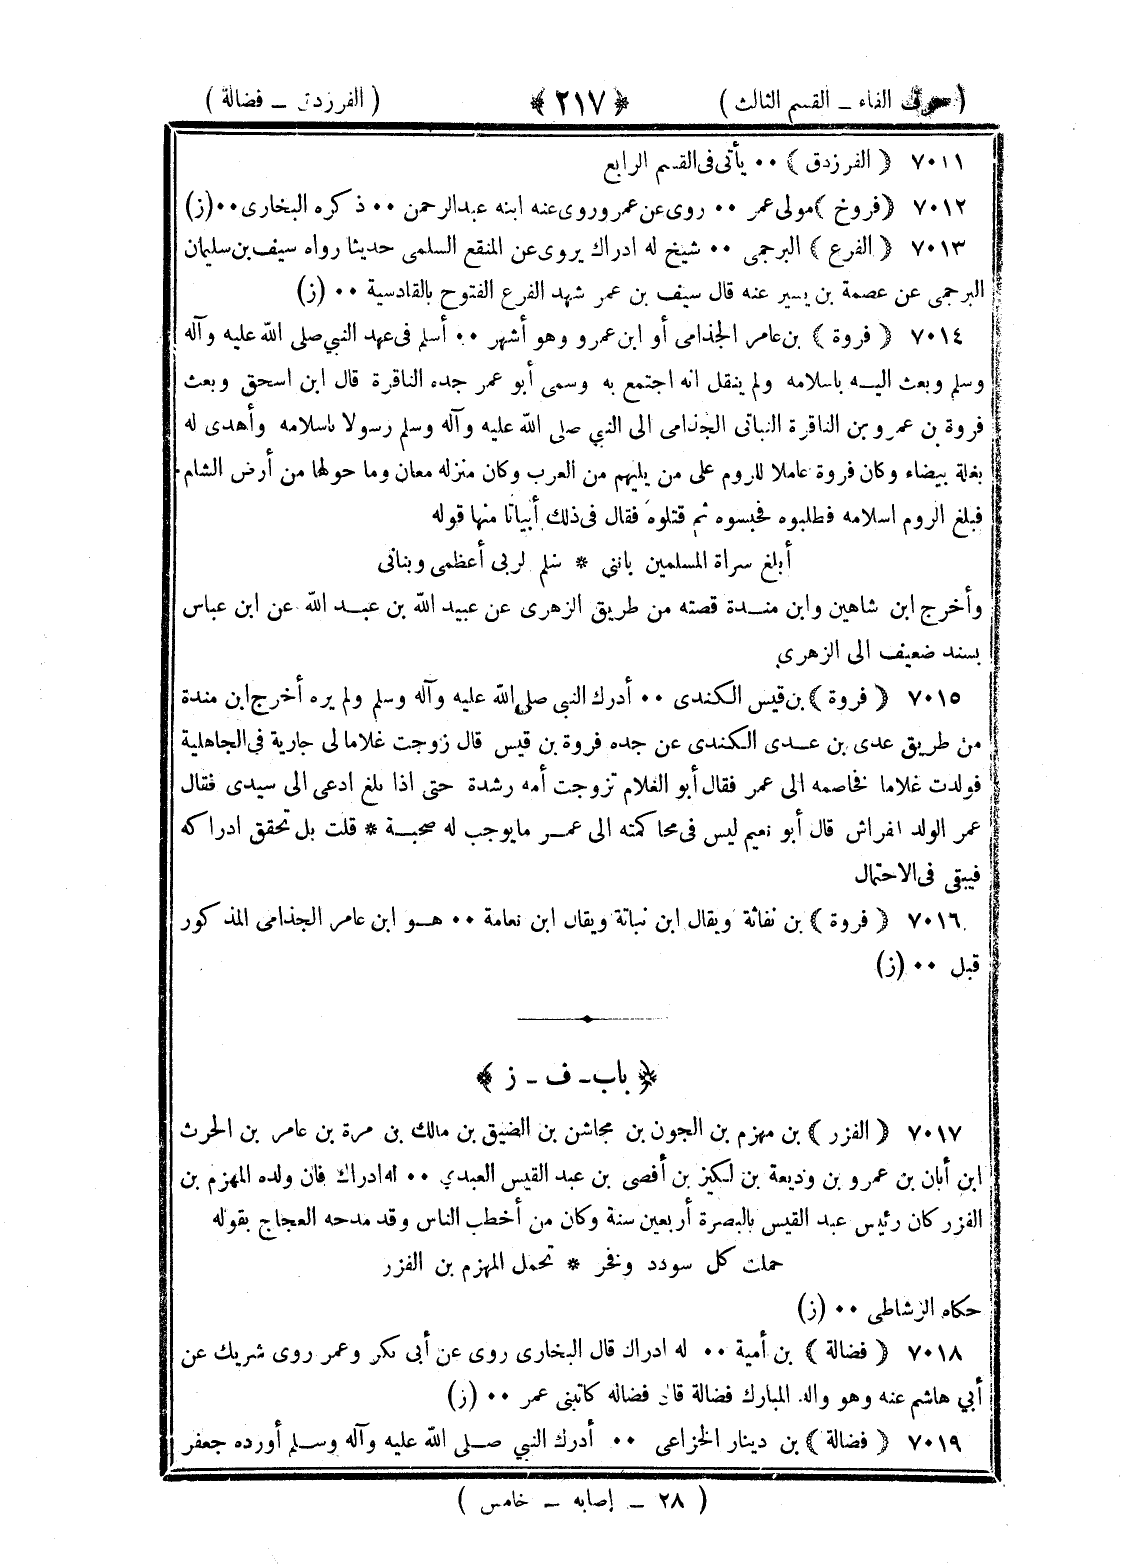 ( حرف الفاء ــ القسم الثالث ) ﴿ ٢١٧ ﴾ ( الفرزدق ــ فضالة )
٧٠١١ ( الفرزدق ) ٠٠ يأتى فى القسم الرابع
٧٠١٢ (فروخ ) مولى عمر ٠٠ روى عن عمر وروى عنه ابنه عبدالرحمن ٠٠ ذكره البخارى ٠٠ (ز)
٧٠١٣ ( الفرع ) البرجمى ٠٠ شيخ له ادراك يروى عن المنقع السلمى حديثا رواه سيف بن سليمان
البرجمى عن عصمة بن يسير عنه قال سيف بن عمر شهد الفرع الفتوح بالقادسية ٠٠ (ز)
٧٠١٤ ( فروة ) بن عامر الجذامى أو ابن عمرو وهو أشهر ٠٠ أسلم فى عهد النبي صلى الله عليه وآله
وسلم وبعث اليـــه باسلامه ولم ينقل انه اجتمع به وسمى أبو عمر جده الناقرة قال ابن اسحق وبعث
فروة بن عمرو بن الناقرة النباتى الجذامى الى النبي صلى الله عليه وآله وسلم رسولا باسلامه وأهدى له
بغلة بيضاء وكان فروة عاملا للروم على من يليهم من العرب وكان منزله معان وما حولها من أرض الشام
فبلغ الروم اسلامه فطلبوه فحبسوه ثم قتلوه فقال فى ذلك أبياتا منها قوله
أبلغ سراة المسلمين بانني * سلم لربى أعظمى وبنانى
وأخرج ابن شاهين وابن منـــدة قصته من طريق الزهرى عن عبيد الله بن عبـــد الله عن ابن عباس
بسند ضعيف الى الزهرى
٧٠١٥ ( فروة ) بن قيس الكندى ٠٠ أدرك النبي صلى الله عليه وآله وسلم ولم يره أخرج ابن مندة
من طريق عدى بن عـــدى الكندى عن جده فروة بن قيس قال زوجت غلاما لى جارية فى الجاهلية
فولدت غلاما فخاصمه الى عمر فقال أبو الغلام تزوجت أمه رشدة حتى اذا بلغ ادعى الى سيدى فقال
عمر الولد للفراش قال أبو نعيم ليس فى محاكمته الى عمـــر مايوجب له صحبـــة * قلت بل تحقق ادراكه
فيبقى فى الاحتمال
٧٠١٦ ( فروة ) بن نفاثة ويقال ابن نباتة ويقال ابن نعامة ٠٠ هـــو ابن عامر الجذامى المذكور
قبل ٠٠ (ز)
﴿ باب ــ ف ــ ز ﴾
٧٠١٧ ( الفزر ) بن مهزم بن الجون بن مجاشن بن الضيق بن مالك بن مرة بن عامر بن الحرث
ابن أبان بن عمرو بن وديعة بن لكيز بن أفصى بن عبد القيس العبدي ٠٠ له ادراك فان ولده المهزم بن
الفزر كان رئيس عبد القيس بالبصرة أربعين سنة وكان من أخطب الناس وقد مدحه العجاج بقوله
حملت كل سودد وفخر * تحمل المهزم بن الفزر
حكاه الرشاطى ٠٠ (ز)
٧٠١٨ ( فضالة ) بن أمية ٠٠ له ادراك قال البخارى روى عن أبى بكر وعمر روى شريك عن
أبي هاشم عنه وهو والد المبارك فضالة قال فضاله كاتبنى عمر ٠٠ (ز)
٧٠١٩ ( فضالة ) بن دينار الخزاعى ٠٠ أدرك النبي صـــلى الله عليه وآله وســـلم أورده جعفر
( ٢٨ ــ إصابه ــ خامس )